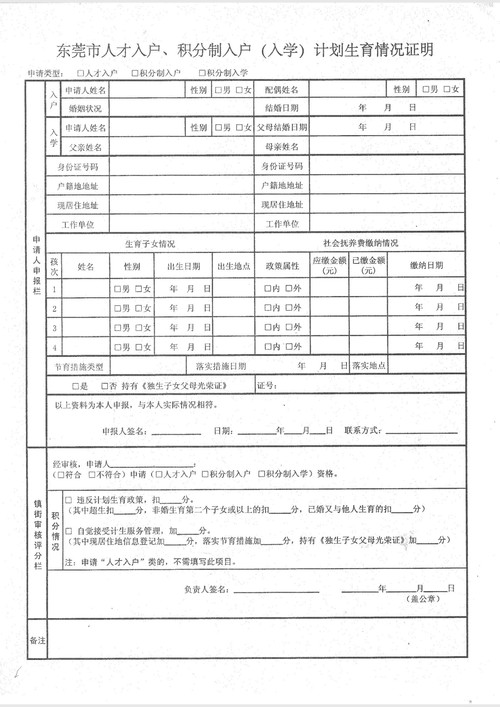 东莞市人才入户、积分制入户（入学）计划生育情况证明
申请类型： □人才入户 □积分制入户 □积分制入学
申请人申报栏
入户 申请人姓名 性别 □男 □女 配偶姓名 性别 □男 □女
婚姻状况 结婚日期 年 月 日
入学 申请人姓名 性别 □男 □女 父母结婚日期 年 月 日
父亲姓名 母亲姓名
身份证号码 身份证号码
户籍地地址 户籍地地址
现居住地址 现居住地址
工作单位 工作单位
生育子女情况 社会抚养费缴纳情况
孩次 姓名 性别 出生日期 出生地点 政策属性 应缴金额（元） 已缴金额（元） 缴纳日期
1 □男 □女 年 月 日 □内 □外 年 月 日
2 □男 □女 年 月 日 □内 □外 年 月 日
3 □男 □女 年 月 日 □内 □外 年 月 日
4 □男 □女 年 月 日 □内 □外 年 月 日
节育措施类型 落实措施日期 年 月 日 落实地点
□是 □否 持有《独生子女父母光荣证》 证号：
以上资料为本人申报，与本人实际情况相符。
申报人签名：______ 日期：______年____月____日 联系方式：______
镇街审核评分栏
经审核，申请人______：
（□符合 □不符合）申请（□人才入户 □积分制入户 □积分制入学）资格。
积分情况
□ 违反计划生育政策，扣____分。
（其中超生扣____分，非婚生育第二个子女或以上的扣____分，已婚又与他人生育的扣____分）
□ 自觉接受计生服务管理，加____分。
（其中现居住地信息登记加____分，落实节育措施加____分，持有《独生子女父母光荣证》加____分）
注：申请“人才入户”类的，不需填写此项目。
负责人签名：______ ______年____月____日
（盖公章）
备注